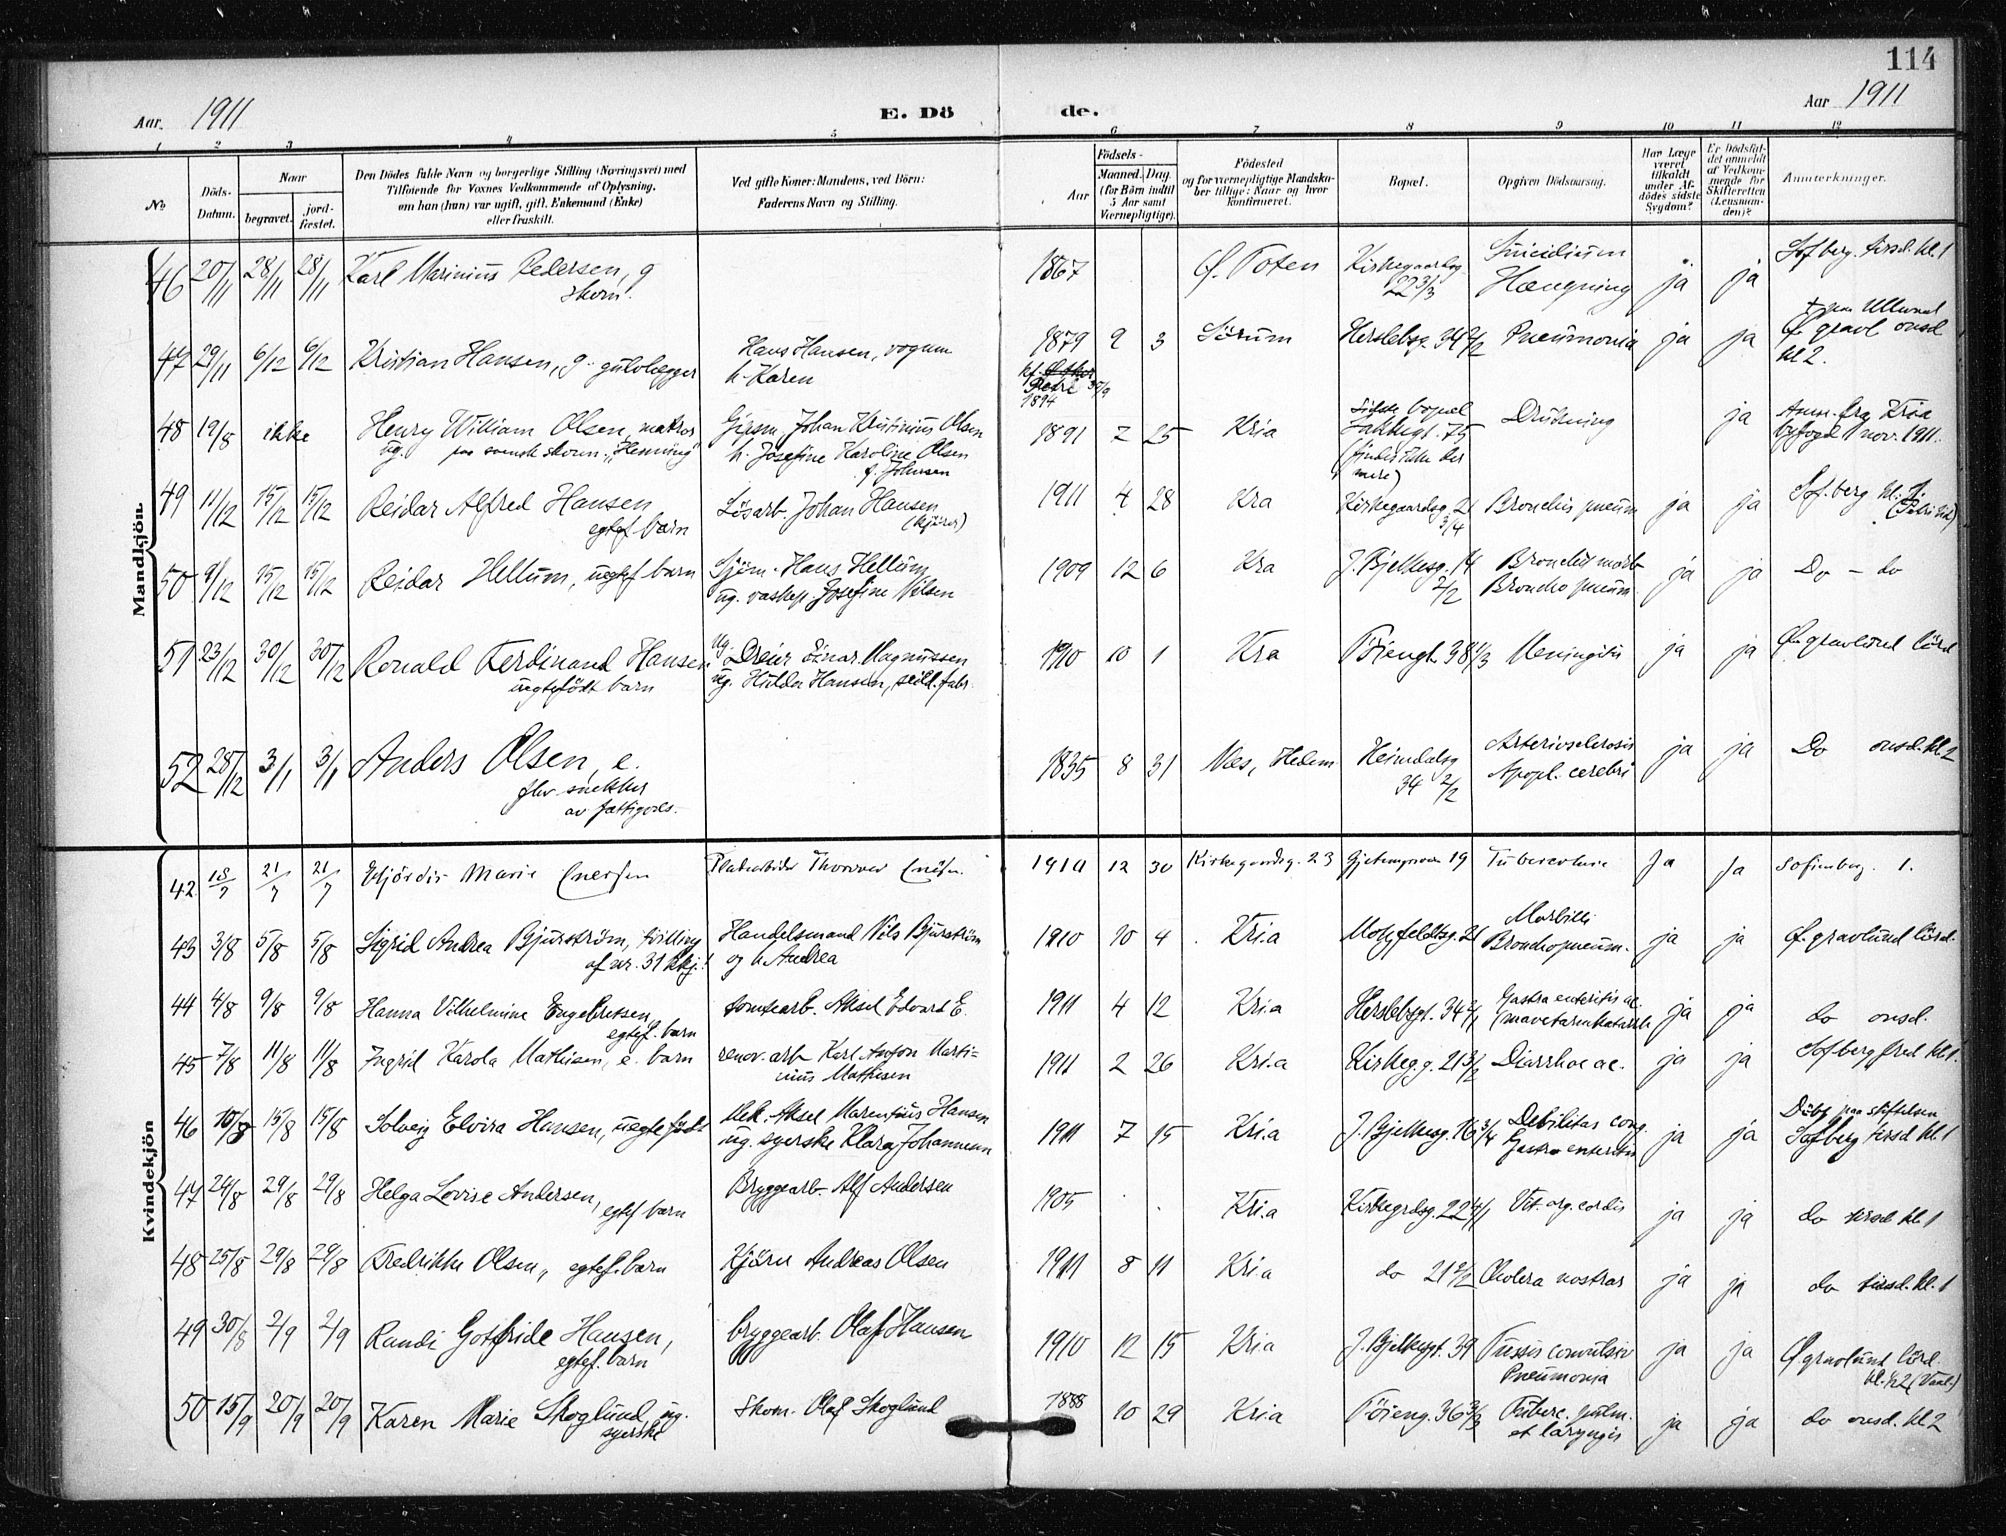 114
Aar 1911
E. Dö
de.
Aar 1911
1 2 3 4 5 6 7 8 9 10 11 12
No.
Döds-Datum.
Naar
begravet.
jord-fæstet.
Den Dödes fulde Navn og borgerlige Stilling (Næringsvei) med
Tilföiende for Voxnes Vedkommende af Oplysning,
om han (hun) var ugift, gift, Enkemand (Enke)
eller fraskilt.
Ved gifte Koner: Mandens, ved Börn:
Faderens Navn og Stilling.
Födsels-
Aar
Maaned. Dag.
(for Börn indtil
5 Aar samt
Værnepligtige).
Födested
og for værnepligtige Mandska-
ber tillige: Naar og hvor
konfirmeret.
Bopæl.
Opgiven Dödsaarsag.
Har Læge
været
tilkaldt
under Af-
dödes sidste
Sygdom?
Er Dödsfal-
det anmeldt
af Vedkom-
mende for
Skifteretten
(Lensman-
den)?
Anmærkninger.
Mandkjön.
46 20/11 28/11 28/11 Karl Marinius Pedersen, g 1867 Ø. Toten Kirkegaardsg Suicidium ja ja Sofberg. tirsd. kl. 1
skom. 22 3/3 Hængning
47 29/11 6/12 6/12 Kristian Hansen, g. gulvlægger Hans Hansen, vognm 1879 9 3 Sörum Herslebsg. 34 2/2 Pneumonia ja ja Ø gravl onsd
h. Karen kl 2.
Petri 30/9
1894
48 19/8 ikke Henry William Olsen, matros Gipsm. Johan Kristinius Olsen 1891 7 25 Kria Sidste bopæl Drukning ja Anm. fra Kria
ug. paa svensk skonn. "Henning" h. Josefine Karoline Olsen Lakkegt. 75 byfogd 1 nov. 1911.
f. Johnsen (findes ikke der
mere)
49 11/12 15/12 15/12 Reidar Alfred Hansen Lösarb. Johan Hansen 1911 4 28 Kra Kirkegaardsg. 21 ja ja Sof.berg kl. 1.
egtef. barn (kjörer) 3/4
50 9/12 15/12 15/12 Reidar Hellum, uegtef barn Sjöm. Hans Hellum 1909 12 6 Kra J. Bjelkesg. 14 ja ja Do - do
ug. vaskep. Josefine Nilsen 2/2 Broncho pneum.
51 23/12 30/12 30/12 Ronald Ferdinand Hansen Ug. Dreier Einar Magnussen 1910 10 1 Kra Töiengt. 38 1/3 Meningitis ja ja Ø. gravlund lörd
uegtefödt barn ug. Hulda Hansen, seild. fabr.
52 28/12 3/1 3/1 Anders Olsen, e. 1835 8 31 Næs, Hedem Heimdalsg Arteriosclerosis ja ja Do onsd. kl. 2
fhv. snekker 34 2/2 Apopl. cerebri
av fattigvæs.
Kvindekjön
42 18/7 21/7 21/7 Hjördis Marie 1910 12 30 Kirkegaardsg. 23 19 Tuberculose Ja Ja Sofienberg. 1.
43 3/8 5/8 5/8 Sigrid Andrea Bjurström, tvilling Handelsmand Nils Bjurström 1910 10 4 Kri.a Motzfeldtsg. 21 Morbilli ja ja Ø. gravlund lörd.
af nr. 31 kkj.! og h. Andrea Bronchopneum.
44 4/8 9/8 9/8 Hanna Vilhelmine Engebretsen, tomtearb. Aksel Edvard E. 1911 4 12 Kria Herslebsgt. 34 2/1 Gastro enteritis ac. ja ja do onsd.
egtef. barn (mavetarmkatarrh
45 7/8 11/8 11/8 Ingrid Karola Mathisen, e. barn renov. arb Karl Anton Marti- 1911 2 26 Kri.a Kirkeg.g. 21 3/2 Diarrhoe ac. ja ja Sofberg fred kl. 1.
nius Mathisen
46 10/8 15/8 15/8 Solveig Elvira Hansen, uegtefödt Mek. Aksel Marentius Hansen 1911 7 15 Kri.a J. Bjelkesg. 16 3/4 Debilitas cong. ja ja Döbt paa stiftelsen
ug. syerske Klara Johannesen Gastro enteritis Sofberg tirsd kl. 1
47 24/8 29/8 29/8 Helga Lovise Andersen, Bryggearb. Alf Andersen 1905 Kri.a Kirkegrdsg. 22 4/1 Vit. org. cordis ja ja do tirsd kl. 1
egtef barn
48 25/8 29/8 29/8 Fredrikke Olsen, egtef. barn Kjörer Andreas Olsen 1911 8 11 Kria do 21 2/2 Cholera nostras ja ja do tirsd. kl. 1
49 30/8 2/9 2/9 Randi Gotfride Hansen, bryggearb. Olaf Hansen 1910 12 15 Kria J. Bjelkegt. 39 Tussis convulsiv ja ja Ø gravlund lörd.
egtef. barn Pneumonia
50 15/9 20/9 20/9 Karen Marie Skoglund, ug. Skom. Olaf Skoglund 1888 10 29 Kria Töieng. 36 3/3 Tuberc. pulm. ja ja do onsd. kl 2
syerske et laryngis